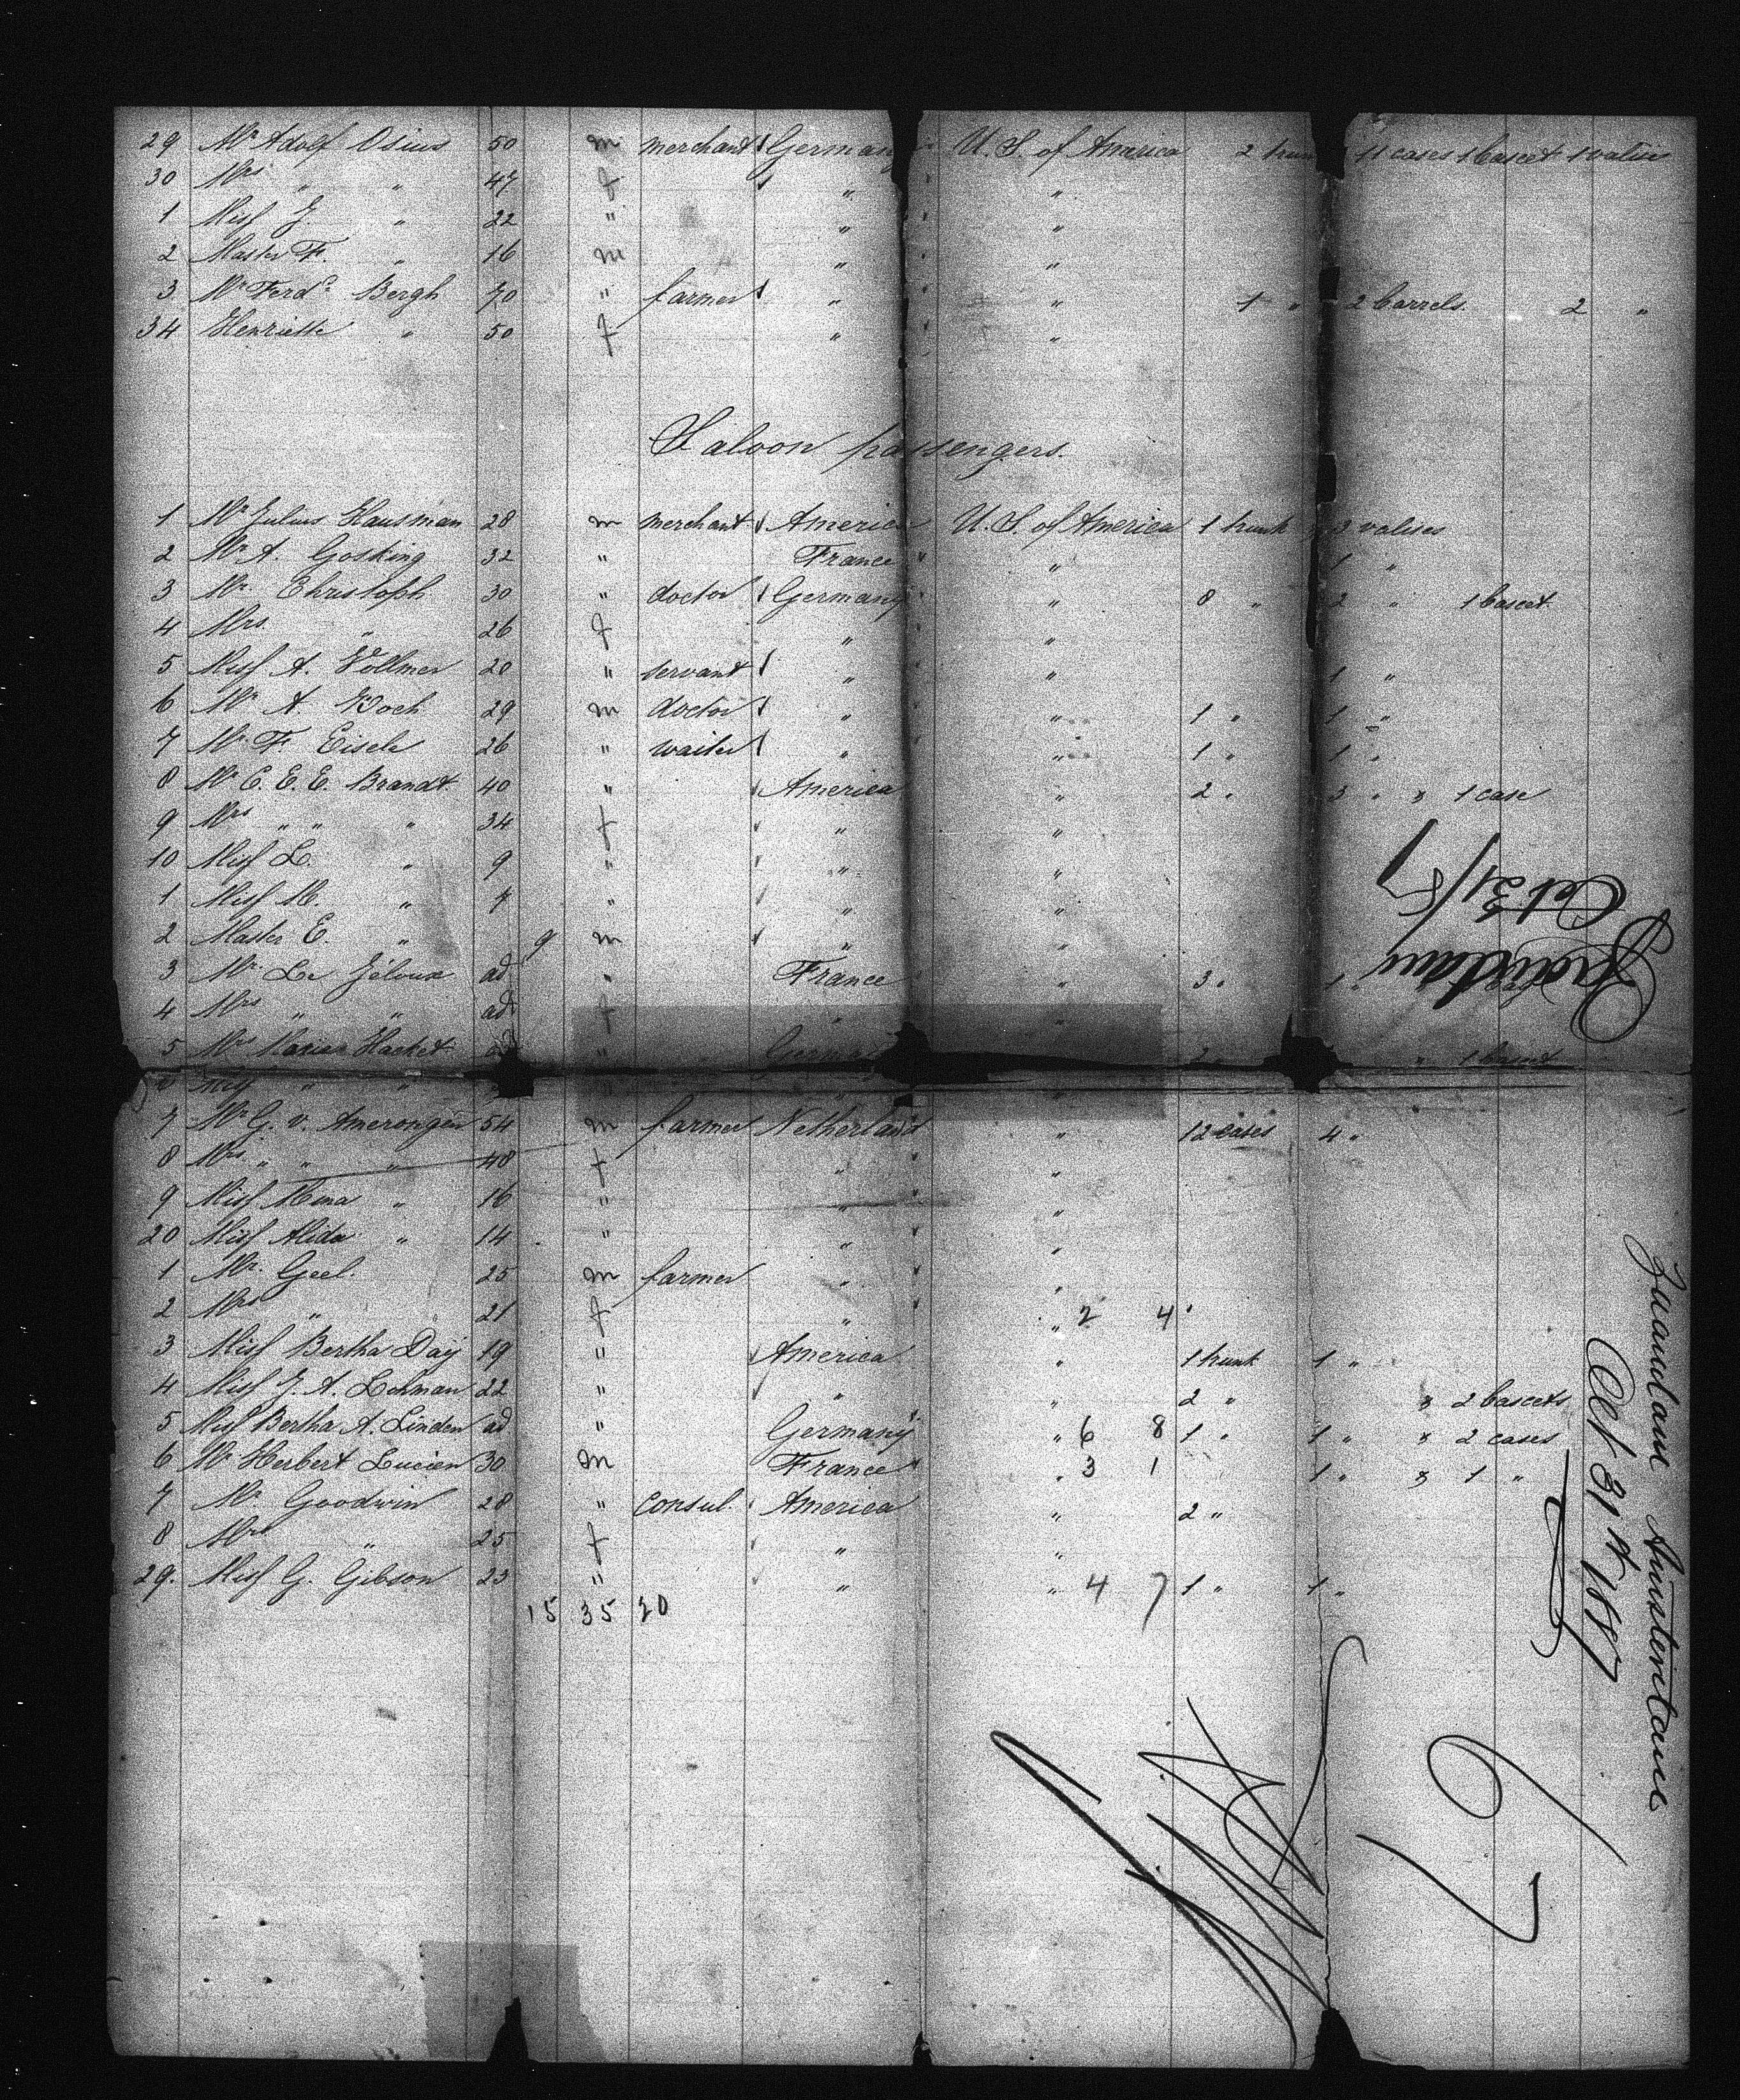 29 Mr Adolf Osius 50 m merchant Germany U.S. of America 2 trun 11 cases 1 bascet 1 valise
30 Mrs " " 47 f " "
1 Miss J. " 22 " " "
2 Master F. " 16 m " "
3 Mr Ferd. Bergh 70 " farmer " " 1 " 2 barrels. 2 "
34 Henriette " 50 f " "
Saloon passengers.
1 Mr Julius Hausman 28 m merchant America U.S. of America 1 trunk 3 valises
2 Mr A. Gosking 32 " France " 1 "
3 Mr. Christoph 30 " doctor Germany " 8 " 2 " 1 bascet
4 Mrs. " 26 f " "
5 Miss A. Vollmer 20 " servant " " 1 "
6 Mr A. Boch 29 m doctor " " 1 " 1 "
7 Mr. F. Eisele 26 " waiter " " 1 " 1 "
8 Mr C. E. E. Brandt 40 " America " 2 " 3 " & 1 case
9 Mrs " " " 34 f " "
10 Miss L. " 9 " " "
1 Miss M. " 7 " " "
2 Master E. " 9 m " "
3 Mr. Le " ad " France " 3 " 1 "
4 Mrs " " ad f " "
5 Mrs Hacket ad " Germa 2 " " 1 bascet
Miss " "
7 Mr G. v. Amerongen 54 m farmer Netherland " 12 cases 4 "
8 Mrs. " " " 48 f " "
9 Miss Mina " 16 " " "
20 Miss Alida " 14 " " "
1 Mr. Geel. 25 m farmer " "
2 Mrs " 21 f " " 2 4
3 Miss Bertha Day 19 " America " 1 trunk 1 "
4 Miss J. A. Lehman 22 " " " 2 " & 2 bascets
5 Miss Bertha A. Linden ad " Germany " 6 8 1 " 1 " & 2 cases
6 Mr Herbert Lucien 30 m France " 3 1 1 " & 1 "
7 Mr. Goodwin 28 " consul. America " 2 "
8 Mrs " 25 f " "
29. Miss G. Gibson 23 " " " 4 7 1 " 1 "
15 35 20
Oct 31/87
Zaandam Amsterdam
Oct 31st 1887